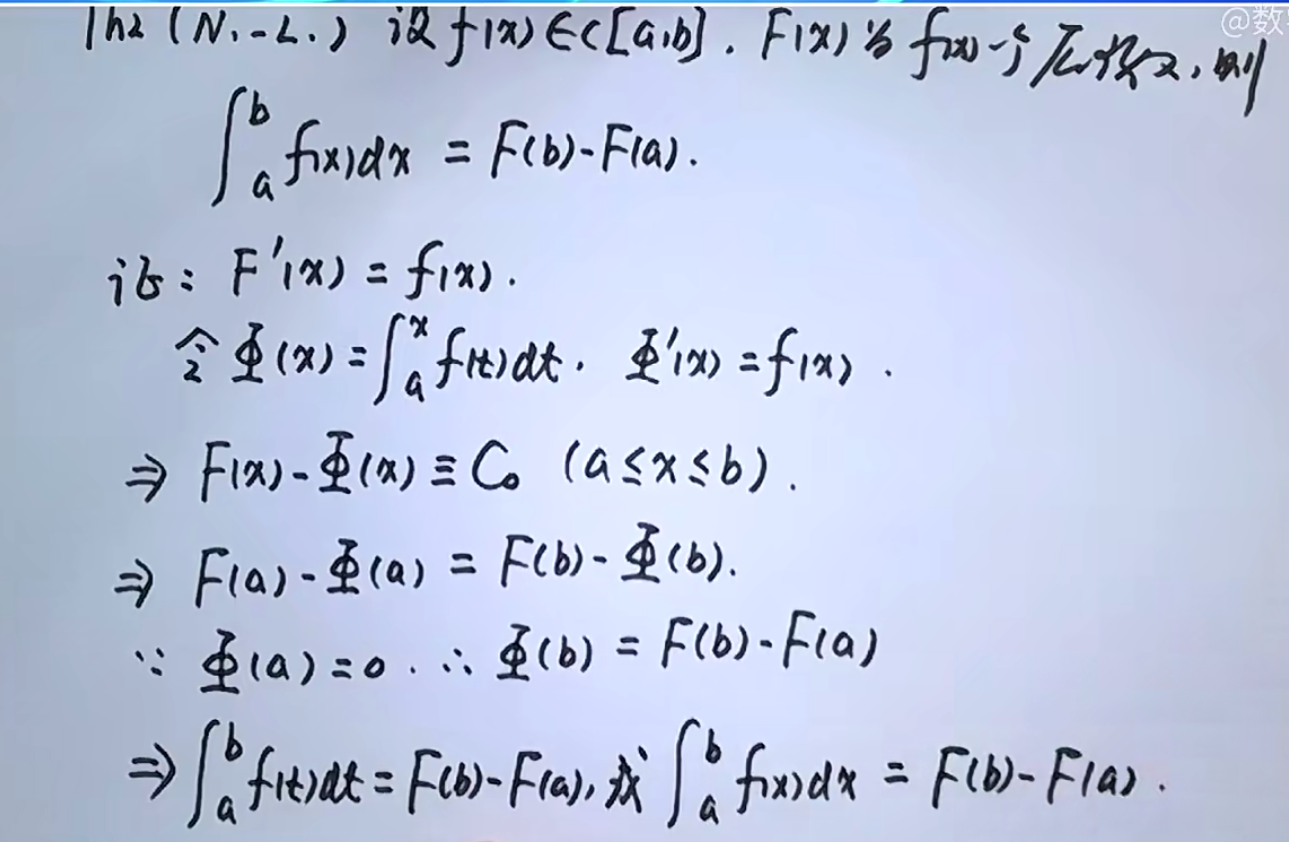 @数
Th2 (N.-L.) 设 f(x)∈C[a,b]. F(x) 为 f(x) 一个原函数, 则
∫_a^b f(x)dx = F(b)-F(a).
证: F'(x) = f(x).
令 Φ(x) = ∫_a^x f(t)dt. Φ'(x) = f(x).
⇒ F(x)-Φ(x) ≡ C₀ (a≤x≤b).
⇒ F(a)-Φ(a) = F(b)-Φ(b).
∵ Φ(a)=0. ∴ Φ(b) = F(b)-F(a)
⇒ ∫_a^b f(t)dt = F(b)-F(a), 或 ∫_a^b f(x)dx = F(b)-F(a).